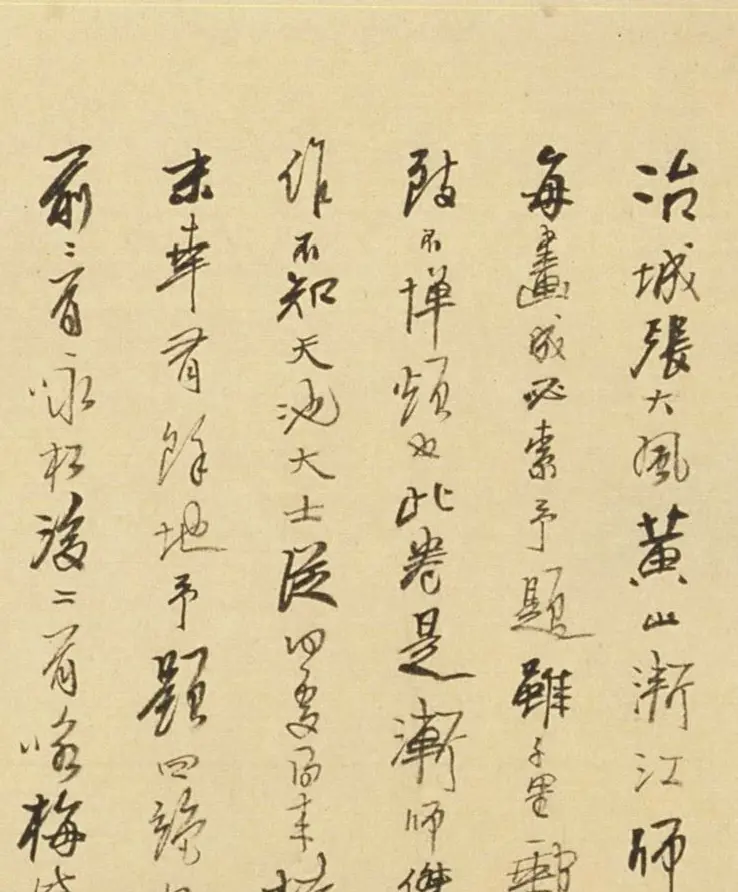 冶城張大風黃山漸江師
每畫成必索予題雖千里
跋不憚煩也此卷是漸師傑
作不知天池大士從何處得來
末幸有餘地予題四詩
前二首咏松後二首咏梅